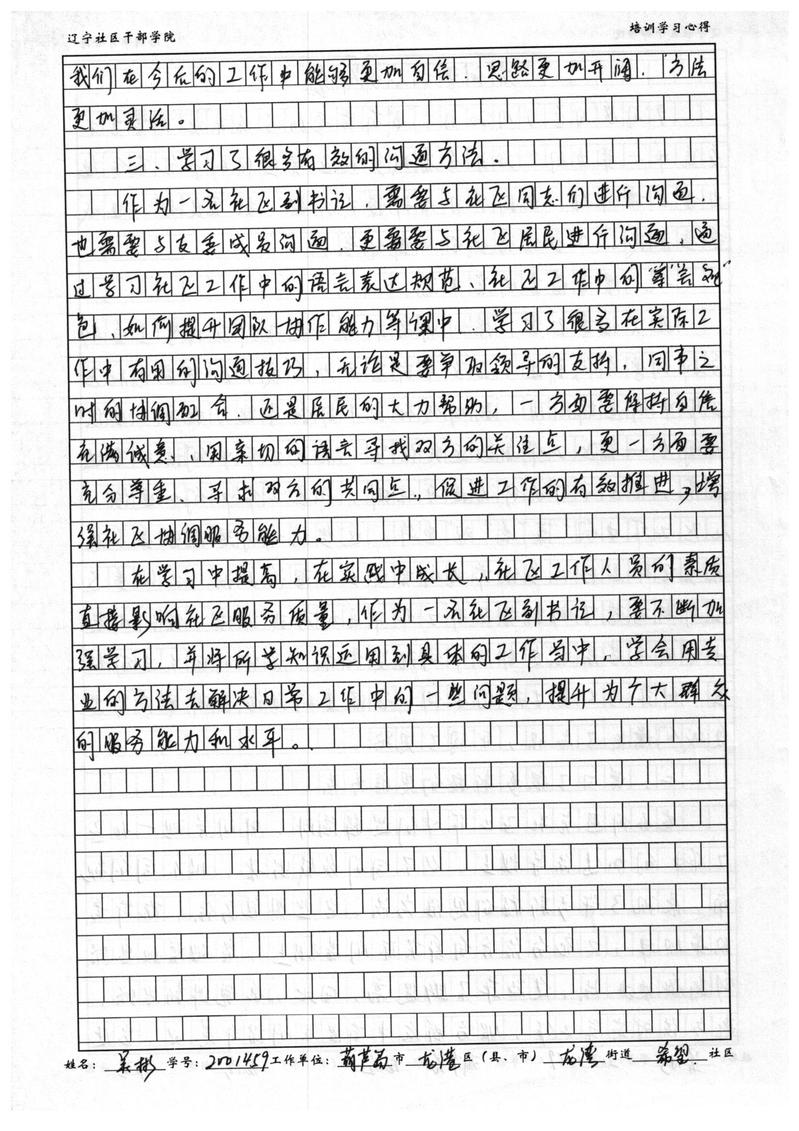 辽宁社区干部学院 培训学习心得
我们在今后的工作中能够更加自信、思路更加开阔、方法
更加灵活。
三、学习了很多有效的沟通方法。
作为一名社区副书记，需要与社区同志们进行沟通，
也需要与支委成员沟通，更需要与社区居民进行沟通，通
过学习社区工作中的语言表达规范、社区工作中的
色，如何提升团队协作能力等课中，学习了很多在实际工
作中有用的沟通技巧，无论是要争取领导的支持，同事之
时的协调配合，还是居民的大力帮助，一方面要保持自信
充满诚意、用亲切的语言寻找双方的关注点，更一方面要
充分尊重、寻找双方的共同点，促进工作的有效推进，增
强社区协调服务能力。
在学习中提高，在实践中成长，社区工作人员的素质
直接影响社区服务质量，作为一名社区副书记，要不断加
强学习，并将所学知识运用到具体的工作当中，学会用专
业的方法去解决日常工作中的一些问题，提升为广大群众
的服务能力和水平。
姓名：吴彬 学号：2001459 工作单位：葫芦岛市 龙港区（县、市） 龙湾街道 希望社区